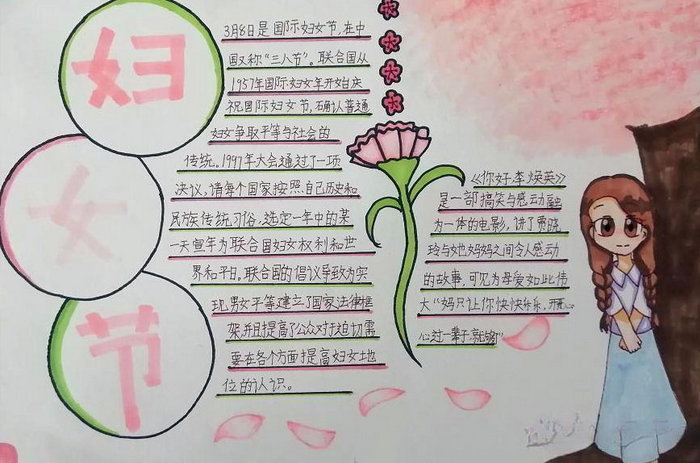 妇
女
节
3月8日是国际妇女节,在中
国又称"三八节"。联合国从
1957年国际妇女年开始庆
祝国际妇女节,确认普通
妇女争取平等与社会的
传统。1997年大会通过了一项
决议,请每个国家按照自己历史和
民族传统习俗,选定一年中的某
一天宣年为联合国妇女权利和世
界和平日。联合国的倡议导致为实
现男女平等建立了国家法律框
架并且提高了公众对于迫切需
要在各个方面提高妇女地
位的认识。
《你好,李焕英》
是一部搞笑与感动融
为一体的电影,讲了贾晓
玲与她妈妈之间令人感动
的故事,可见为母爱如此伟
大"妈只让你快快乐乐,开开心
心过一辈子就能够"